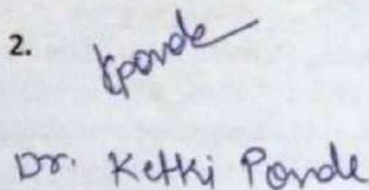 2. Kponde
Dr. Ketki Ponde